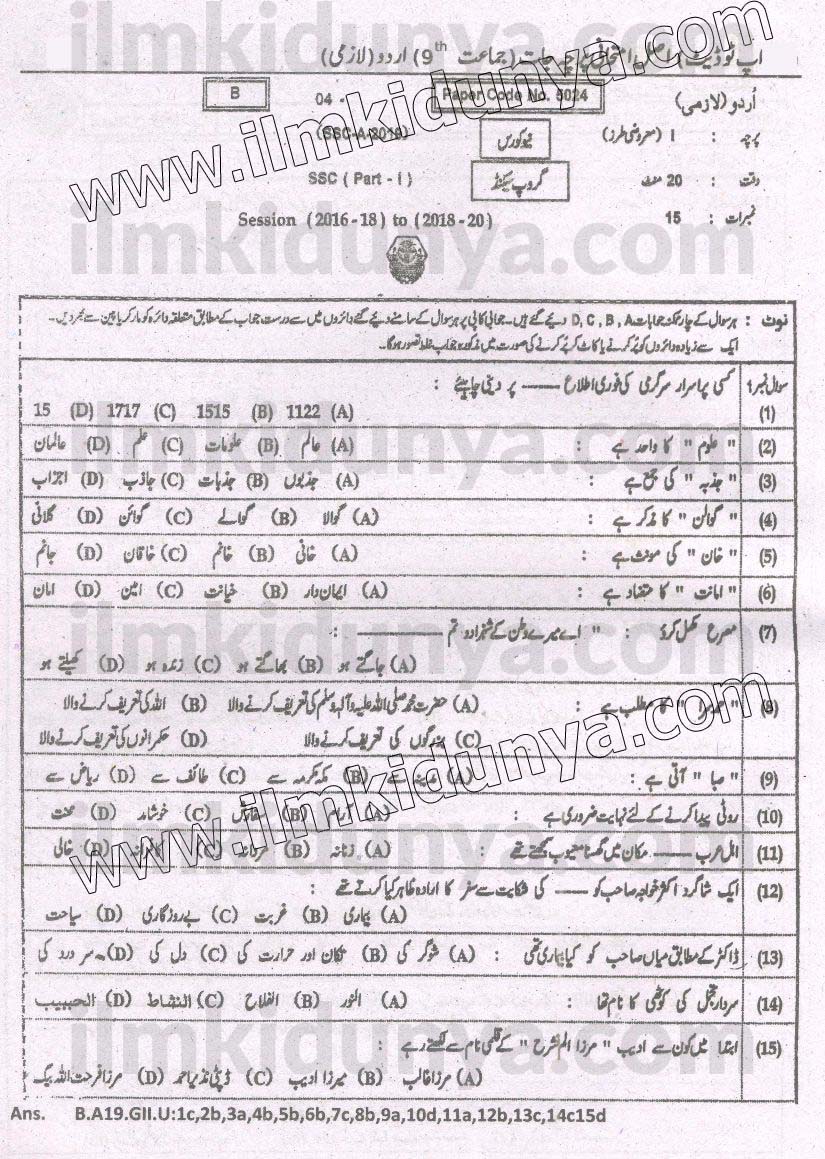 ilmkidunya.com
اپ ٹو ڈیٹ (جماعت 9th) اردو (لازمی)
اُردو (لازمی) Paper Code No. 5024 04 - B
پرچہ : I (معروضی طرز) نیو کورس
وقت : 20 منٹ گروپ سیکنڈ SSC ( Part - I )
نمبرات : 15 Session (2016 - 18) to (2018 - 20)
ilmkidunya.com
www.ilmkidunya.com
نوٹ : ہر سوال کے چار ممکنہ جوابات D, C, B, A دیے گئے ہیں۔ جوابی کاپی پر ہر سوال کے سامنے دیے گئے دائروں میں سے درست جواب کے مطابق متعلقہ دائرہ کو مارکر یا پین سے بھر دیں۔
ایک سے زیادہ دائروں کو پُر کرنے یا کاٹ کر پُر کرنے کی صورت میں مذکورہ جواب غلط تصور ہوگا۔
سوال نمبر 1 کسی پراسرار سرگرمی کی فوری اطلاع ــــــ پر دینی چاہیئے :
(1) (A) 1122 (B) 1515 (C) 1717 (D) 15
(2) " علوم " کا واحد ہے : (A) عالم (B) علومات (C) علم (D) عالمان
(3) " جذبہ " کی جمع ہے : (A) جذبوں (B) جذبات (C) جاذب (D) اجزاب
(4) " گوالن " کا مذکر ہے : (A) گوالا (B) گوالے (C) گوائن (D) گلانی
(5) " خان " کی مونث ہے : (A) خانی (B) خانم (C) خاقان (D) جانم
(6) " امانت " کا متضاد ہے : (A) ایمان دار (B) خیانت (C) امین (D) امان
(7) مصرع مکمل کرو : " اے میرے وطن کے شہزادو تم ــــــــــ :
(A) جاگتے ہو (B) بھاگتے ہو (C) زندہ ہو (D) کھیلتے ہو
(8) کا مطلب ہے : (A) حضرت محمد صلی اللہ علیہ وآلہ وسلم کی تعریف کرنے والا (B) اللہ کی تعریف کرنے والا
(C) بزرگوں کی تعریف کرنے والا (D) حکمرانوں کی تعریف کرنے والا
(9) " صبا " آتی ہے : (A) سے (B) مکہ مکرمہ سے (C) طائف سے (D) ریاض سے
(10) روٹی پیدا کرنے کے لئے نہایت ضروری ہے : (A) آرام (B) سفارش (C) خوشامد (D) محنت
(11) اہل عرب ــــــ مکان میں گھسنا معیوب سمجھتے تھے : (A) زنانہ (B) مردانہ (C) (D) خالی
(12) ایک شاگرد اکثر خواجہ صاحب کو ــــــ کی شکایت سے سفر کا ارادہ ظاہر کیا کرتے تھے :
(A) بیماری (B) غربت (C) بے روزگاری (D) سیاحت
(13) ڈاکٹر کے مطابق میاں صاحب کو کیا بیماری تھی : (A) شوگر کی (B) تکان اور حرارت کی (C) دل کی (D) سر درد کی
(14) سردار تجمل کی کوٹھی کا نام تھا : (A) النور (B) الفلاح (C) النشاط (D) الحبیب
(15) ابتدا میں کون سے ادیب " مرزا الم نشرح " کے قلمی نام سے لکھتے رہے :
(A) مرزا غالب (B) میرزا ادیب (C) ڈپٹی نذیر احمد (D) مرزا فرحت اللہ بیگ
www.ilmkidunya.com
ilmkidunya.com
Ans. B.A19.GII.U:1c,2b,3a,4b,5b,6b,7c,8b,9a,10d,11a,12b,13c,14c15d